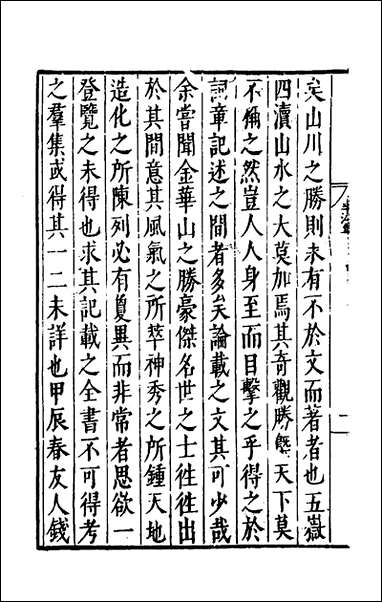 矣山川之勝則未有不於文而著者也五嶽
四瀆山水之大莫加焉其奇觀勝槩天下莫
不稱之然豈人人身至而目擊之乎得之於
詞章記述之間者多矣論載之文其可少哉
余嘗聞金華山之勝豪傑名世之士徃徃出
於其間意其風氣之所萃神秀之所鍾天地
造化之所陳列必有夐異而非常者思欲一
登覽之未得也求其記載之全書不可得考
之羣集或得其一二未詳也甲辰春友人錢
二